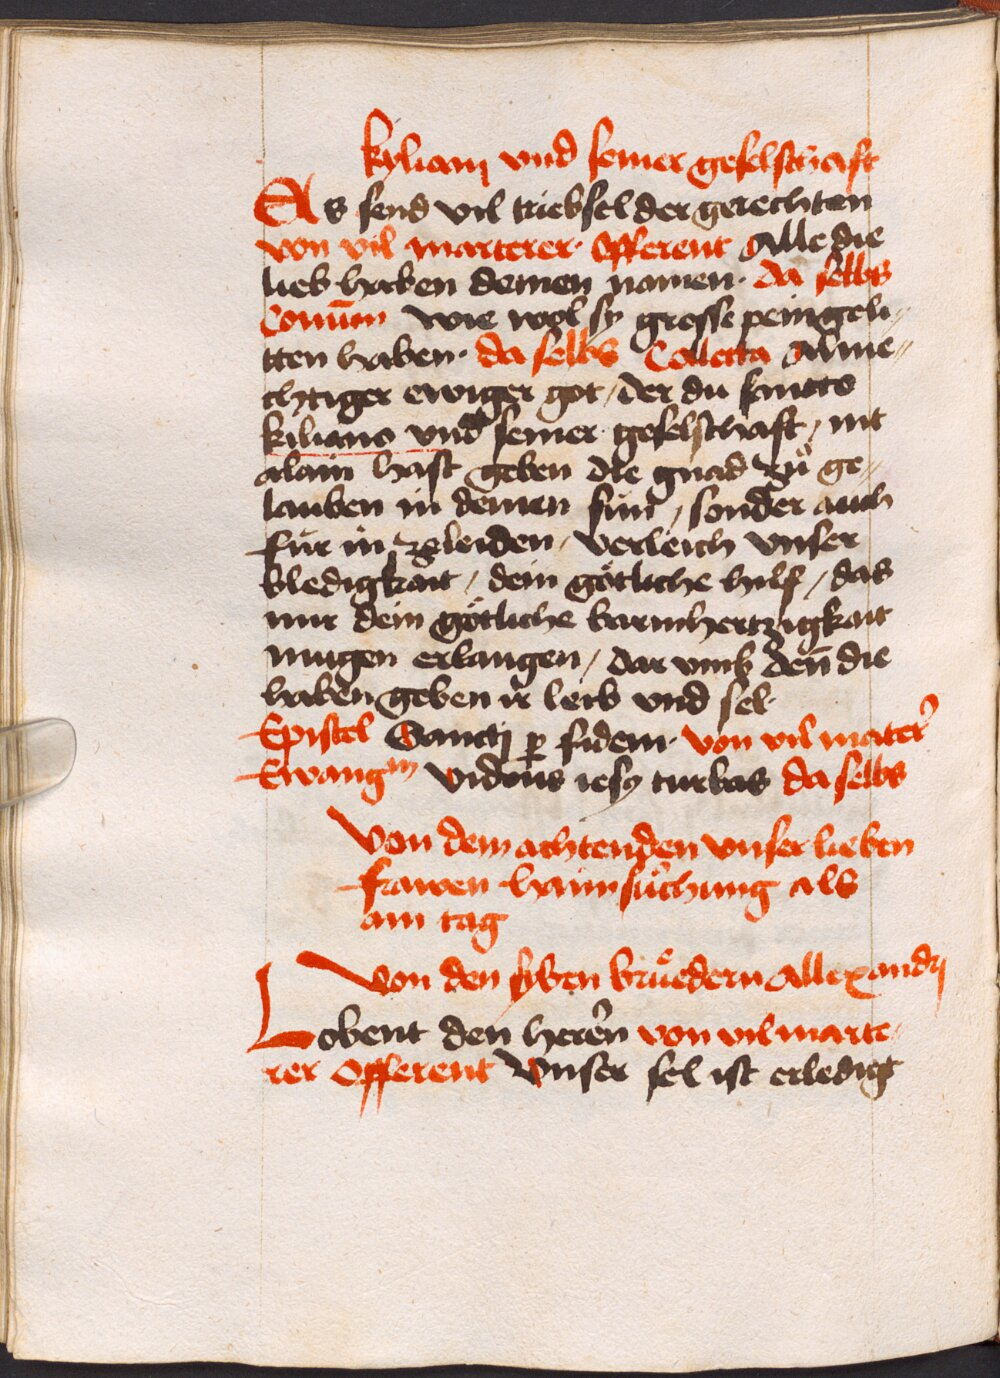 kyliani vnd seiner geselschaft
As send vil triebsel der gerechten
von vil marterer. Offerent Alle die
lieb haben deinen namen. da selbs
Comūm wie wol sy grosse pein geli„
tten haben. da selbs Collecta Alme„
chtiger ewiger got / der du sancto
kiliano vnd seiner geselschaft / nit
alain hast geben die gnad zů ge„
lauben in deinen sun / sonder auch
für in zeleiden / verleich vnser
bledigkait / dein götliche hilf / das
mir dein götliche barmhertzigkait
mugen erlangen / dar vmb deñ die
haben geben ir leib vnd sel.
Epistel Sancti ꝑ fidem. von vil mater̉
Ewangm videns iesus turbas da selbs
Von dem achtenden vnser lieben
frawen haimsůchung als
am tag
Von den syben brůedern Allexandrj
Lobent den herẽn von vil marte„
rer Offerent Vnser sel ist erledigt